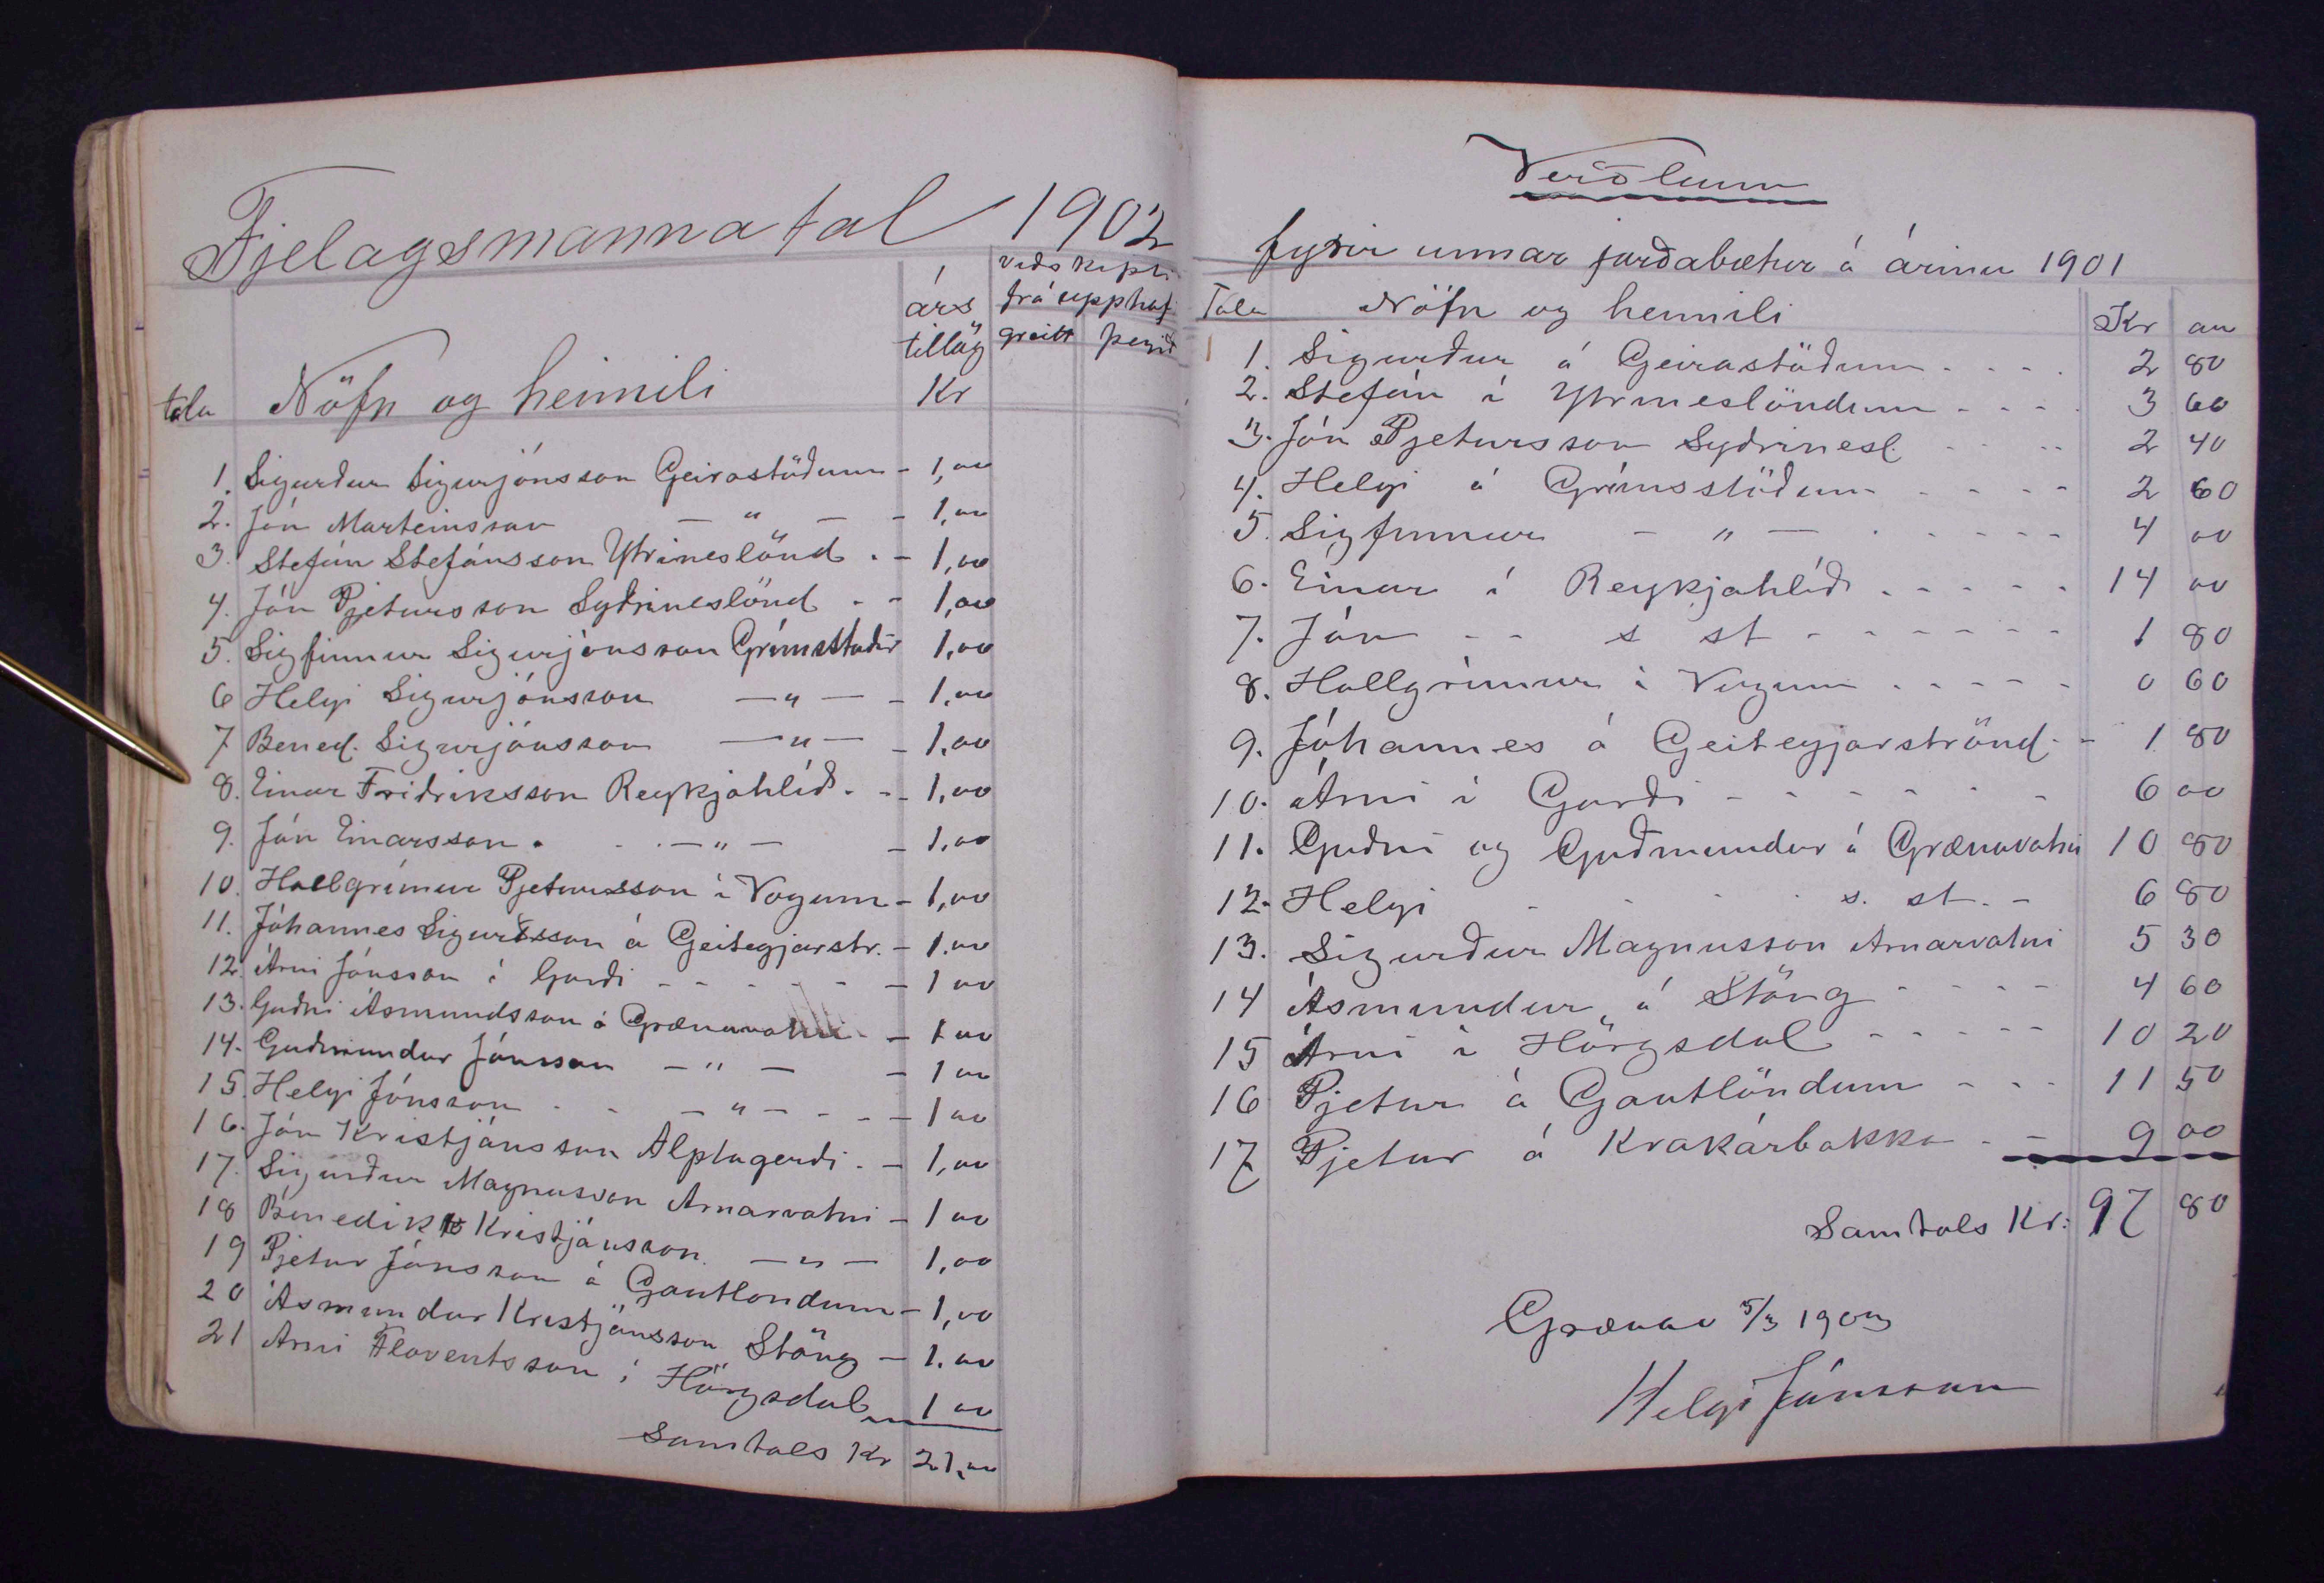 Fjelagsmannatal 1902
tala Nöfn og heimili árs tillög Kr viðskipti frá upphafi greitt þegið
1. Sigurður Sigurjónsson Geirastöðum - 1,00
2. Jón Marteinsson — " — - 1,00
3. Stefán Stefánsson Ytrineslönd . - 1,00
4. Jón Pjetursson Syðrineslönd - - 1,00
5. Sigfinnur Sigurjónsson Grímsstaðir 1,00
6 Helgi Sigurjónsson — " — - 1,00
7 Bened. Sigurjónsson — " — - 1,00
8. Einar Friðriksson Reykjahlíð . - - 1,00
9. Jón Einarsson . . . — " — - 1,00
10. Hallgrímur Pjetursson í Vogum - 1,00
11. Jóhannes Sigurðsson á Geitegjarstr. - 1.00
12. Árni Jónsson í Garði - - - - - - 1 00
13. Guðni Ásmundsson á Grænavatni - - 1 00
14. Guðmundur Jónsson — " — - 1 00
15. Helgi Jónsson - - — " — - - - 1 00
16. Jón Kristjánsson Alptagerði . - 1,00
17. Sigurður Magnusson Arnarvatni - 1 00
18 Benedikt Kristjánsson — " — 1,00
19 Pjetur Jónsson á Gautlöndum - 1,00
20 Ásmundur Kristjánsson Stöng - 1.00
21 Árni Flóventsson í Hörgsdal 1 00
Samtals Kr 21,00
Verðlaun
fyrir unnar jarðabætur á árinu 1901
Tala Nöfn og heimili Kr au
1. Sigurður á Geirastöðum - - - . 2 80
2. Stefán í Ytrineslöndum - - - . 3 60
3. Jón Pjetursson Syðrinesl. - - - 2 40
4. Helgi á Grímsstöðum - - - - 2 60
5. Sigfinnur - " — . - - - - 4 00
6. Einar í Reykjahlíð . - - - - 14 00
7. Jón - - s st - - - - - - 1 80
8. Hallgrímur í Vogum . - - - - 0 60
9. Jóhannes á Geitegjarströnd - - 1 80
10. Árni í Garði - - - - - - 6 00
11. Guðni og Guðmundur á Grænavatni 10 80
12. Helgi - - - s. st. - 6 80
13. Sigurður Magnusson Arnarvatni 5 30
14 Ásmundur á Stöng - - - - 4 60
15 Árni í Hörgsdal - - - - - 10 20
16 Pjetur á Gautlöndum - - - 11 50
17 Pjetur á Krákárbakka - - 9 00
Samtals Kr: 97 80
Grænav 5/3 1903
Helgi Jónsson